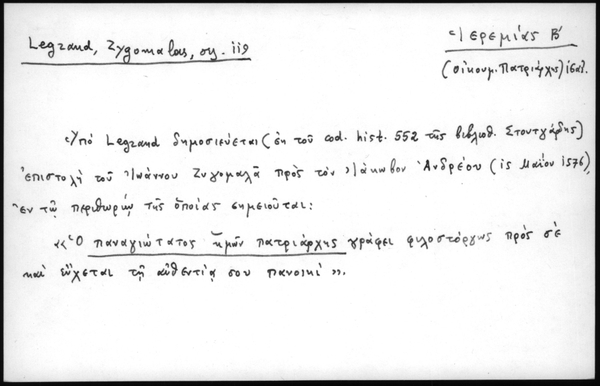 Legrand, Zygomalas, σς. 119
Ἱερεμίας Β'
(οἰκουμ. Πατριάρχης)
Ὑπὸ Legrand δημοσιεύεται (ἐκ τοῦ cod. hist. 552 τῆς βιβλιοθ. Στουτγάρδης)
ἐπιστολὴ τοῦ Ἰωάννου Ζυγομαλᾶ πρὸς τὸν Ἰάκωβον Ἀνδρέου (15 Μαΐου 1576),
ἐν τῷ περιθωρίῳ τῆς ὁποίας σημειοῦται:
«Ὁ παναγιώτατος ἡμῶν πατριάρχης γράφει φιλοστόργως πρὸς σὲ
καὶ εὔχεται τῇ αὐθεντίᾳ σου πανοικί».